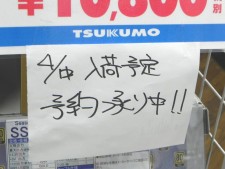 ¥10,800
TSUKUMO
4/中 入荷予定
予約承り中!!
SS